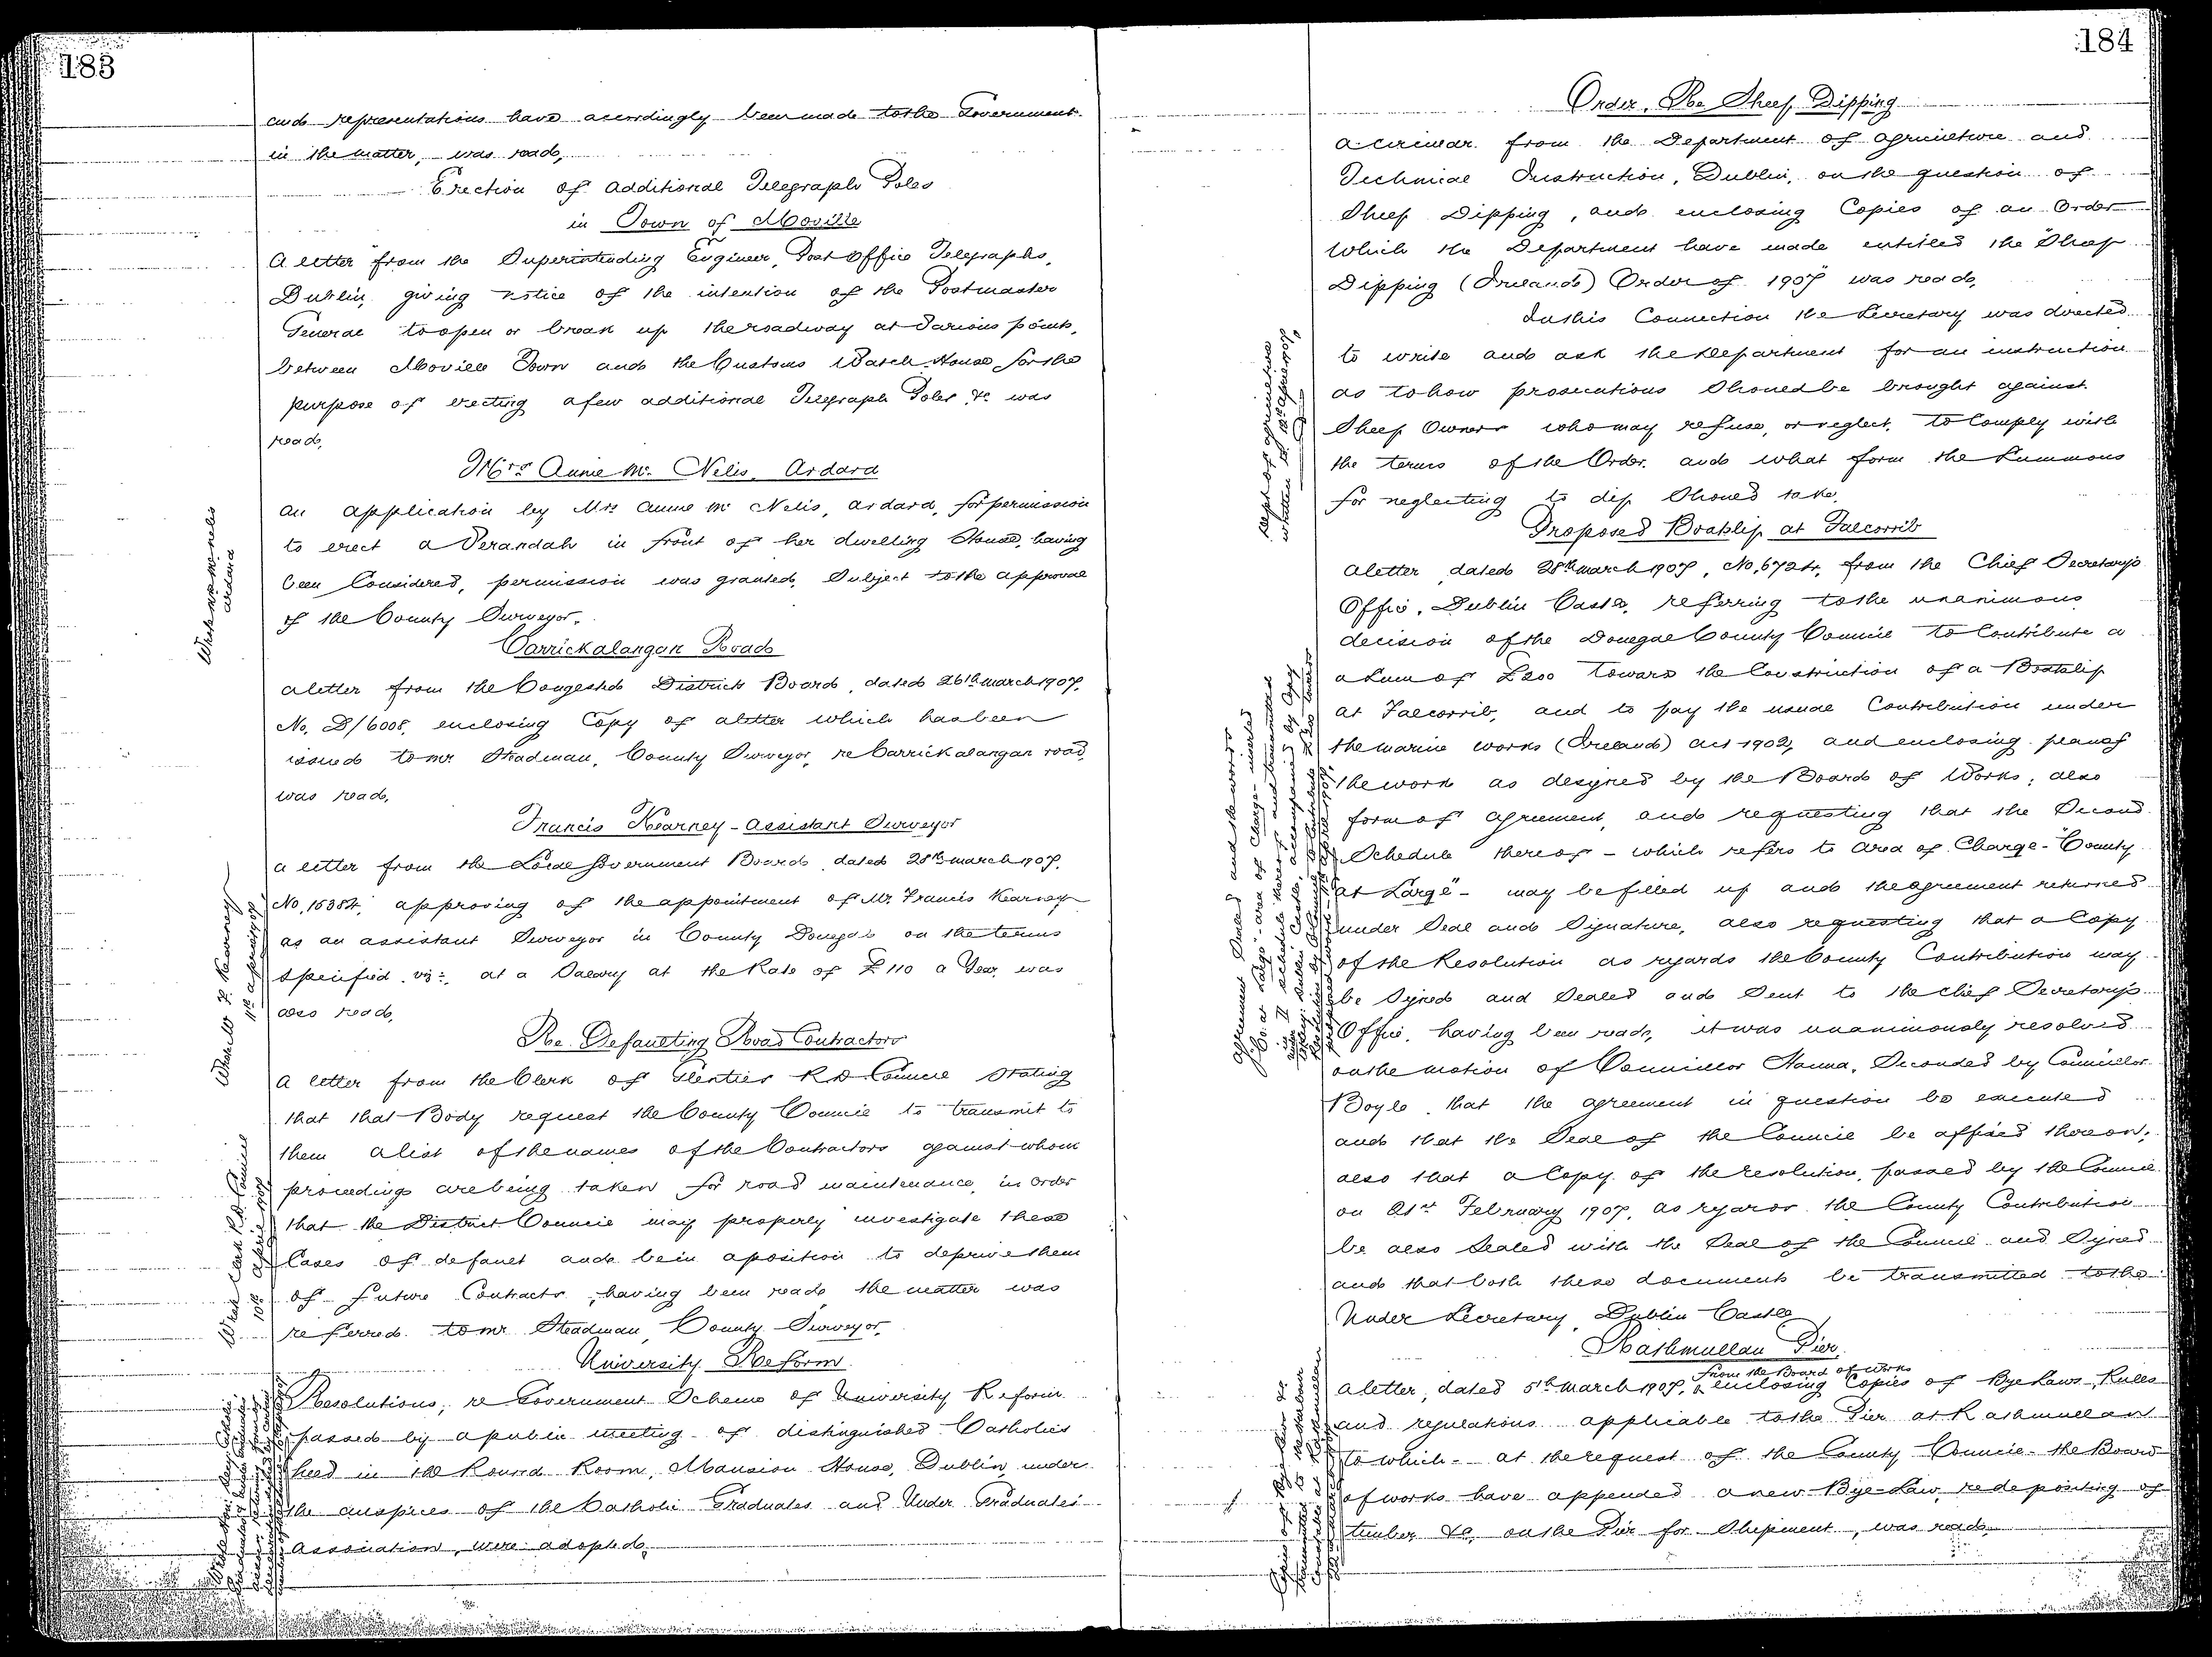 183
and representations have accordingly been made to the Government
in the matter, was read,
Erection of additional Telegraph Poles
in Town of Moville
A letter from the Superintending Engineer, Post Office Telegraphs,
Dublin, giving notice of the intention of the Postmaster
General to open or break up the roadway at various points,
between Moville Town and the Customs Watch House for the
purpose of erecting a few additional Telegraph Poles &c was
read,
Mrs Annie Mc Nelis, Ardara
An application by Mrs Annie Mc Nelis, Ardara, for permission
to erect a Verandah in front of her dwelling House, having
been Considered, permission was granted, Subject to the approval
of the County Surveyor.
Wrote Mrs McNelis
Ardara
Carrickalangan Road
A letter from the Congested Districts Board, dated 26th March 1907,
No. D/6008, enclosing Copy of a letter which has been
issued to Mr Steadman, County Surveyor, re Carrickalangan road,
was read,
Francis Kearney - Assistant Surveyor
A letter from the Local Government Board, dated 28th March 1907,
No, 16384, approving of the appointment of Mr. Francis Kearney
as an Assistant Surveyor in County Donegal on the terms
specified viz:, at a Salary at the Rate of £110 a Year, was
also read,
Wrote Mr F. Kearney
11th April 1907
Re. Defaulting Road Contractors
A letter from the Clerk of Glenties R.D. Council Stating
that that Body request the County Council to transmit to
them a list of the names of the Contractors against whom
proceedings are being taken for road maintenance, in order
that the District Council may properly investigate these
Cases of default and be in a position to deprive them
of future Contracts, having been read the matter was
referred to Mr Steadman, County Surveyor,
Wrote Clerk R.D. Council
10th April 1907
University Reform
Resolutions, re Government Scheme of University Reform
passed by a public meeting of distinguished Catholics
held in the Round Room, Mansion House, Dublin, under
the auspices of the Catholic Graduates and Under Graduates
Association, were adopted,
184
Order, Re Sheep Dipping
A circular from the Department of Agriculture and
Technical Instruction, Dublin, on the question of
Sheep Dipping, and enclosing Copies of an Order
which the Department have made entitled the "Sheep
Dipping (Ireland) Order of 1907" was read,
In this Connection the Secretary was directed
to write and ask the Department for an instruction
as to how prosecutions Should be brought against
Sheep Owners who may refuse, or neglect, to Comply with
the terms of the Order, and what form the Summons
for neglecting to dip Should take,
Dept of Agriculture
written to 10th April 1907
Proposed Boatslip at Falcorrib
A letter dated 28th March 1907, No, 6724, from the Chief Secretary's
Office, Dublin Castle, referring to the unanimous
decision of the Donegal County Council to Contribute a
a Sum of £200 toward the Construction of a Boatslip
at Falcorrib, and to pay the usual Contribution under
the marine works (Ireland) Act 1902, and enclosing plans of
the work as designed by the Board of Works; also
form of agreement, and requesting that the Second
Schedule thereof - which refers to area of Charge - "County
at Large" - may be filled up and the agreement returned
under Seal and Signature, also requesting that a Copy
of the Resolution as regards the County Contribution may
be Signed and Sealed and Sent to the Chief Secretary's
Office, having been read, it was unanimously resolved
on the motion of Councillor Hanna, Seconded by Councillor
Boyle, that the agreement in question be executed
and that the Seal of the Council be affixed thereon;
also that a Copy of the resolution, passed by the Council
on 21st February 1907, as regards the County Contribution
be also Sealed with the Seal of the Council and Signed
and that both these documents be transmitted to the
Under Secretary, Dublin Castle
Agreement Sealed and the words
"Co. at Large" - area of Charge - inserted
Rathmullan Pier,
A letter, dated 5th March 1907, from the Board of Works enclosing Copies of Bye Laws, Rules
and regulations applicable to the Pier at Rathmullan
to which - at the request of the County Council - the Board
of works have appended a new Bye-Law, re depositing of
timber &c, on the Pier for Shipment, was read,